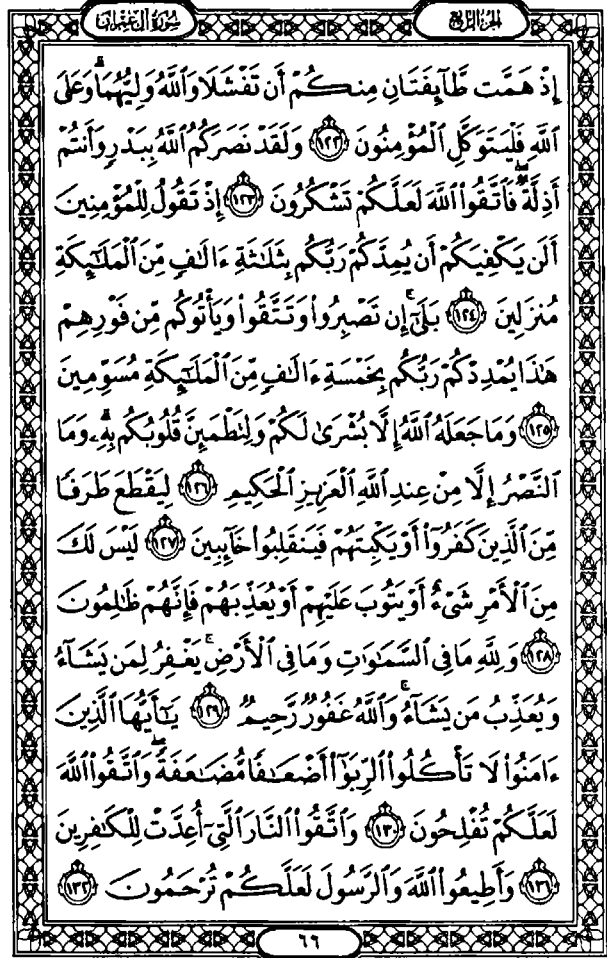 الجزء الرابع
سورة آل عمران
إِذْ هَمَّت طَّآئِفَتَانِ مِنكُمْ أَن تَفْشَلَا وَٱللَّهُ وَلِيُّهُمَا ۗ وَعَلَى
ٱللَّهِ فَلْيَتَوَكَّلِ ٱلْمُؤْمِنُونَ ١٢٢ وَلَقَدْ نَصَرَكُمُ ٱللَّهُ بِبَدْرٍ وَأَنتُمْ
أَذِلَّةٌ ۖ فَٱتَّقُوا۟ ٱللَّهَ لَعَلَّكُمْ تَشْكُرُونَ ١٢٣ إِذْ تَقُولُ لِلْمُؤْمِنِينَ
أَلَن يَكْفِيَكُمْ أَن يُمِدَّكُمْ رَبُّكُم بِثَلَٰثَةِ ءَالَٰفٍ مِّنَ ٱلْمَلَٰٓئِكَةِ
مُنزَلِينَ ١٢٤ بَلَىٰٓ ۚ إِن تَصْبِرُوا۟ وَتَتَّقُوا۟ وَيَأْتُوكُم مِّن فَوْرِهِمْ
هَٰذَا يُمْدِدْكُمْ رَبُّكُم بِخَمْسَةِ ءَالَٰفٍ مِّنَ ٱلْمَلَٰٓئِكَةِ مُسَوِّمِينَ
١٢٥ وَمَا جَعَلَهُ ٱللَّهُ إِلَّا بُشْرَىٰ لَكُمْ وَلِتَطْمَئِنَّ قُلُوبُكُم بِهِۦ ۗ وَمَا
ٱلنَّصْرُ إِلَّا مِنْ عِندِ ٱللَّهِ ٱلْعَزِيزِ ٱلْحَكِيمِ ١٢٦ لِيَقْطَعَ طَرَفًا
مِّنَ ٱلَّذِينَ كَفَرُوٓا۟ أَوْ يَكْبِتَهُمْ فَيَنقَلِبُوا۟ خَآئِبِينَ ١٢٧ لَيْسَ لَكَ
مِنَ ٱلْأَمْرِ شَىْءٌ أَوْ يَتُوبَ عَلَيْهِمْ أَوْ يُعَذِّبَهُمْ فَإِنَّهُمْ ظَٰلِمُونَ
١٢٨ وَلِلَّهِ مَا فِى ٱلسَّمَٰوَٰتِ وَمَا فِى ٱلْأَرْضِ ۚ يَغْفِرُ لِمَن يَشَآءُ
وَيُعَذِّبُ مَن يَشَآءُ ۚ وَٱللَّهُ غَفُورٌ رَّحِيمٌ ١٢٩ يَٰٓأَيُّهَا ٱلَّذِينَ
ءَامَنُوا۟ لَا تَأْكُلُوا۟ ٱلرِّبَوٰٓا۟ أَضْعَٰفًا مُّضَٰعَفَةً ۖ وَٱتَّقُوا۟ ٱللَّهَ
لَعَلَّكُمْ تُفْلِحُونَ ١٣٠ وَٱتَّقُوا۟ ٱلنَّارَ ٱلَّتِىٓ أُعِدَّتْ لِلْكَٰفِرِينَ
١٣١ وَأَطِيعُوا۟ ٱللَّهَ وَٱلرَّسُولَ لَعَلَّكُمْ تُرْحَمُونَ ١٣٢
٦٦